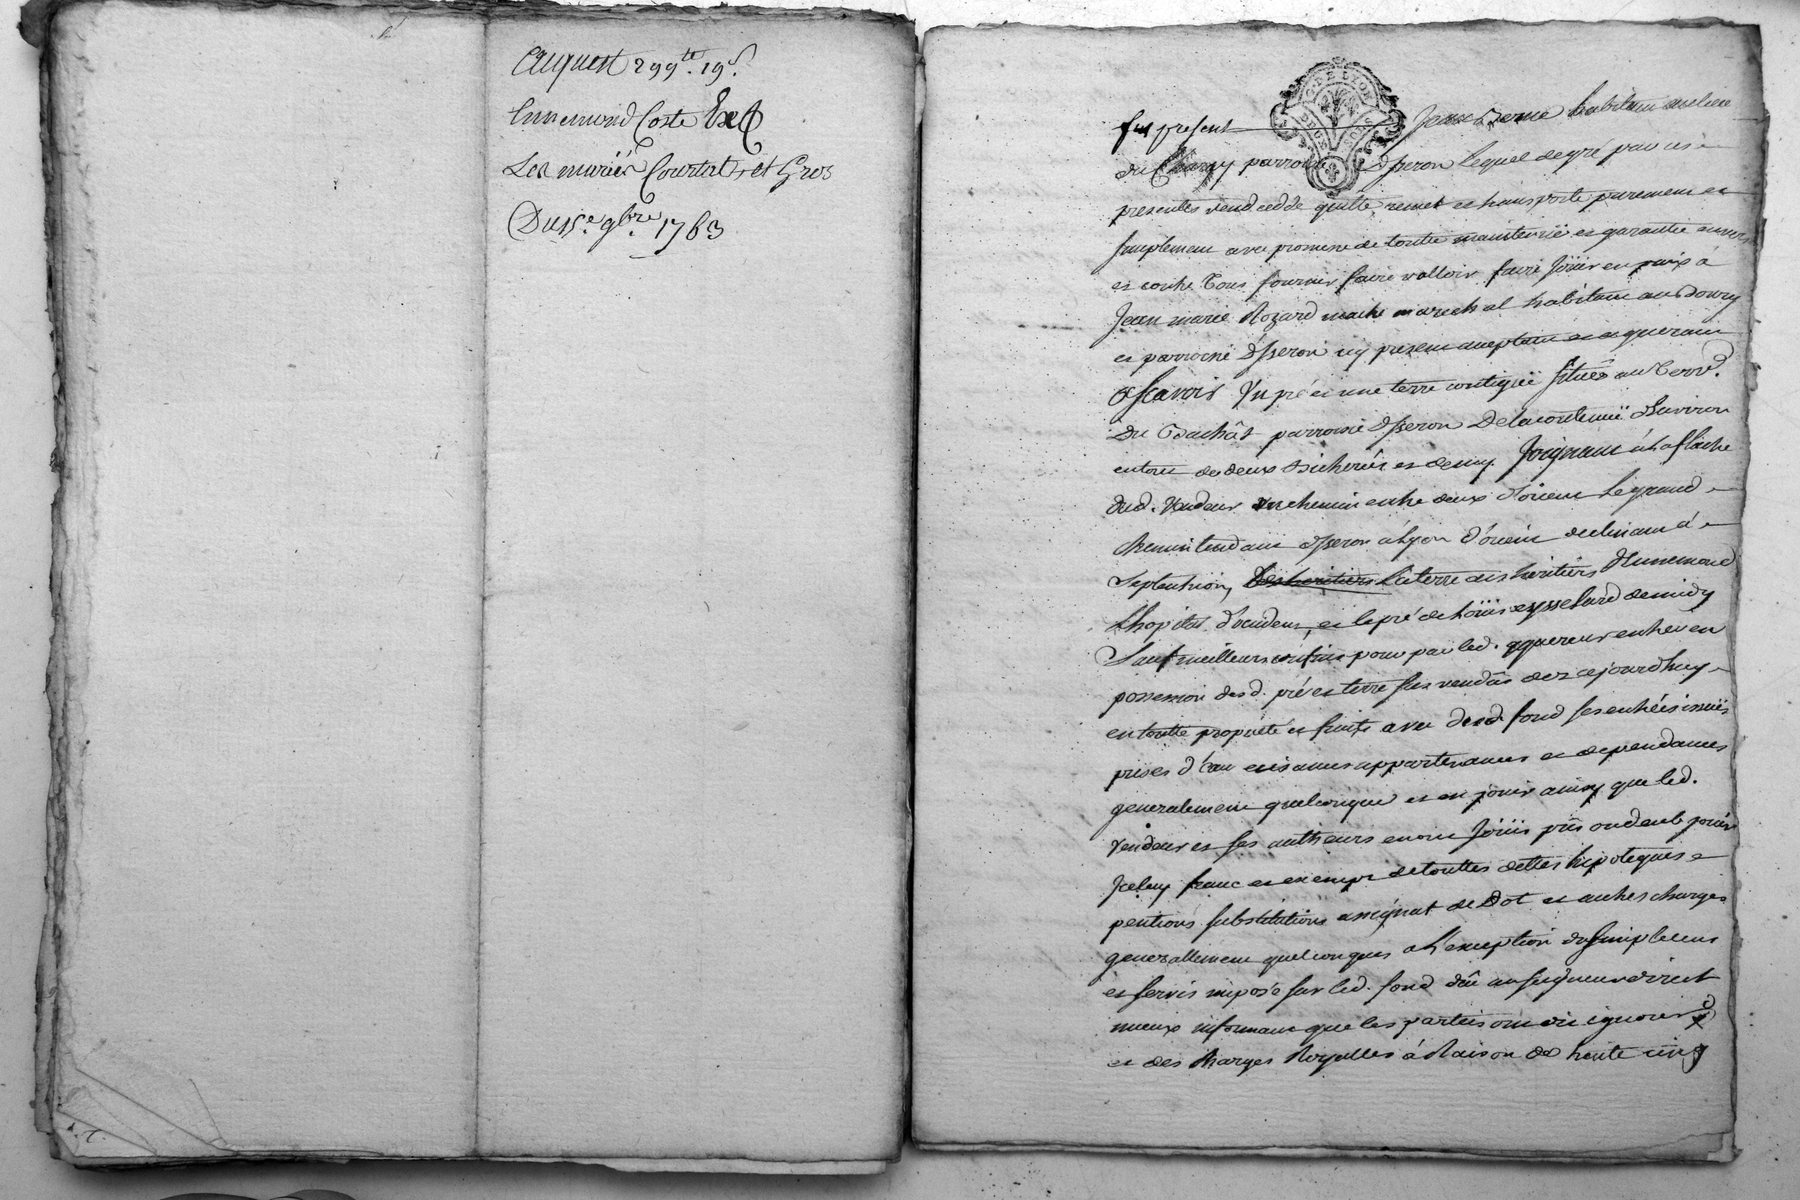 acquest 299 tt. 19 s.
Ennemond Coste Ext
Les mariés Courtet et Gros
Du 15e. 9bre 1763
G. DE LYON
fut present Jean Berne habitant au lieu
du parroisse d'Yzeron lequel de gré par ces
presentes vend cedde quitte remet et transporte purement et
simplement avec promesse de toutte maintenüe et garantie envers
et contre tous fournir faire valloir faire joüir en paix à
Jean marie Rozard maitre marechal habitant au Bourg
et parroisse d'Yzeron icy present acceptant et acquerant
Scavoir Un pré et une terre contigüe situés au Terrd.
Du Bachât parroisse d'Yzeron De la contenüe d'environ
entour de deux bicherées et demy Joignant à la flache
dud. Vendeur un chemin entre deux d'orient le grand
chemin tendant d'Yzeron à Lyon d'orient declinant à
Septentrion, Les heritiers la terre des heritiers d'Ennemond
Lhopital d'occident, et le pré de Loüis eysselard de midy
Sauf meilleurs confins pour par led. acquereur entrer en
possession desd. pré et terre sus vendus dez cejourdhuy
en toutte proprieté et fruits avec dud. fond ses entrées issuës
prises d'eau aisances appartenances et dependances
generalement quelconques et en jouir ainsy que led.
Vendeur et ses autheurs en ont joüis pûs ou deub joüir
Icelluy franc et exempt de touttes dettes hipoteques
pentions substitutions assignat de Dot et autres charges
generallement quelconques a L'exception du simple cens
et servis imposé sur led. fond dû au seigneur direct
mieux informant que les parties ont dit ignorer
et des charges Royalles à Raison de trente cinq